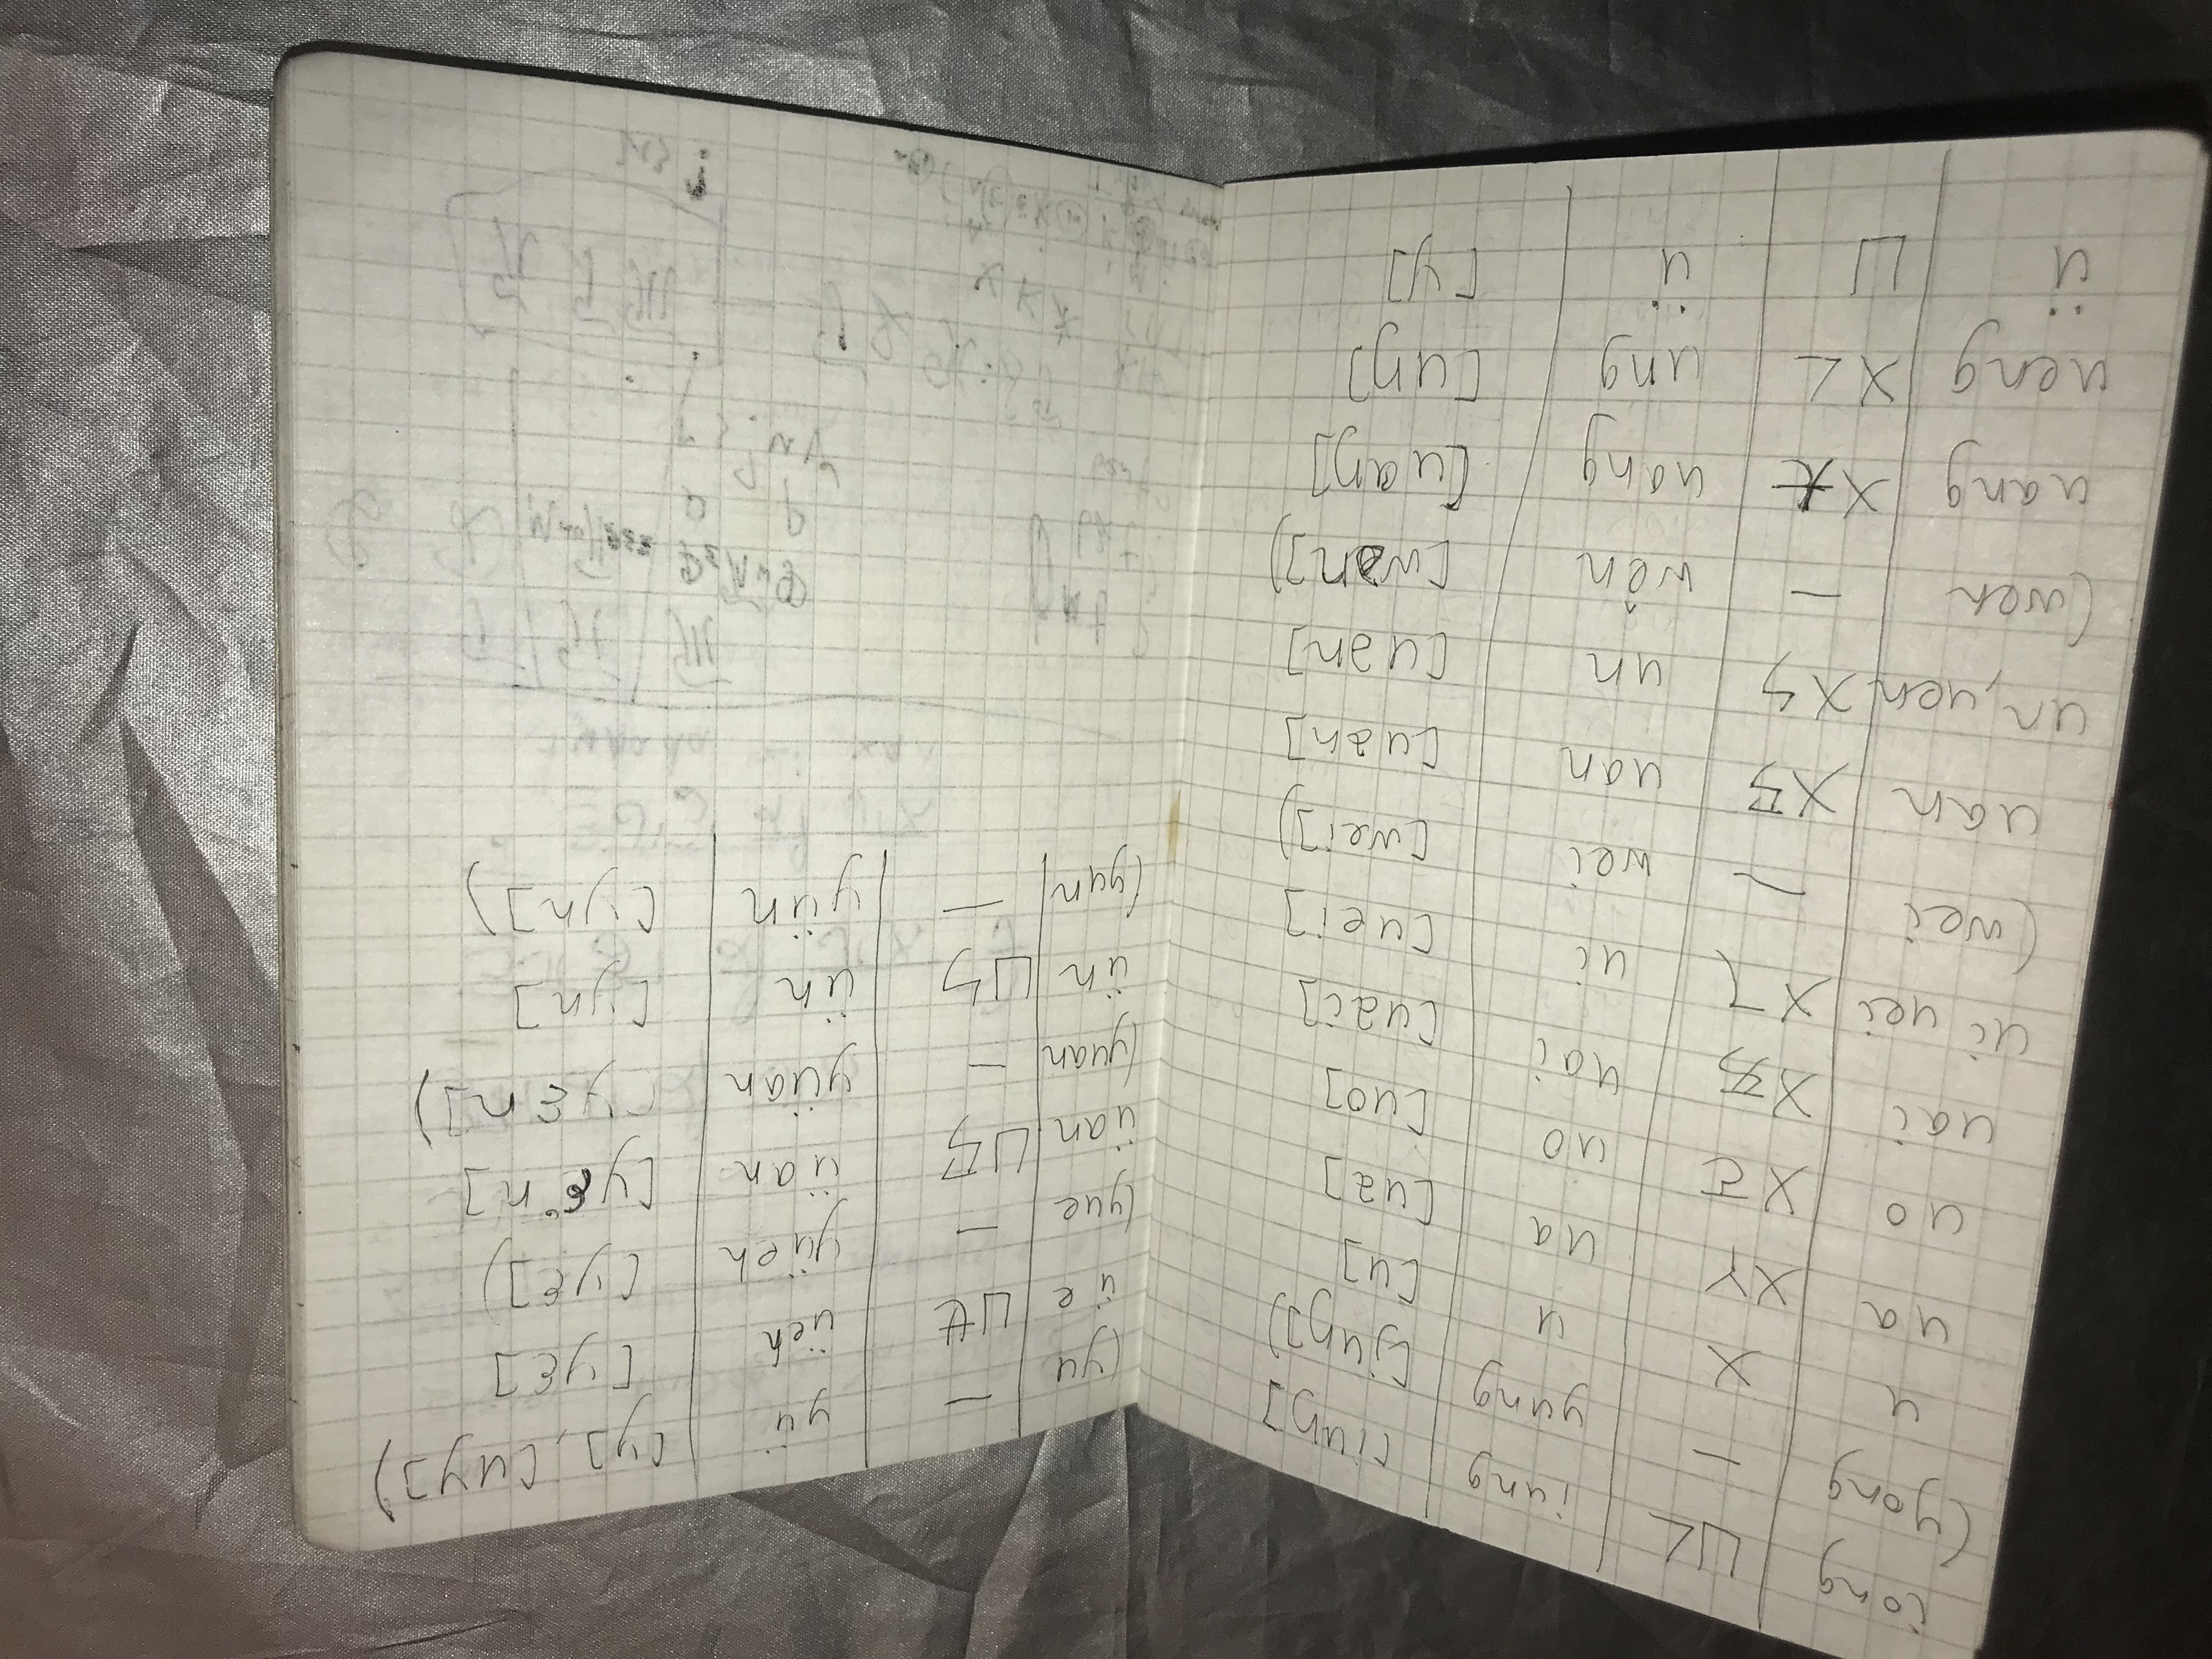 iong ㄩㄥ iung [iuŋ]
(yong — yung [juŋ])
u ㄨ u [u]
ua ㄨㄚ ua [ua]
uo ㄨㄛ uo [uo]
uai ㄨㄞ uai [uai]
ui uei ㄨㄟ ui [uei]
(wei — wei [wei])
uan ㄨㄢ uan [uan]
un, uen ㄨㄣ un [uən]
(wen — wên [wən])
uang ㄨㄤ uang [uaŋ]
ueng ㄨㄥ ung [uŋ]
ü ㄩ ü [y]
(yu — yü [y], [uy])
üe ㄩㄝ üeh [yɛ]
(yue — yüeh [yɛ])
üan ㄩㄢ üan [yɛ°n]
(yuan — yüan [yɛn])
ün ㄩㄣ ün [yn]
(yun — yün [yn])